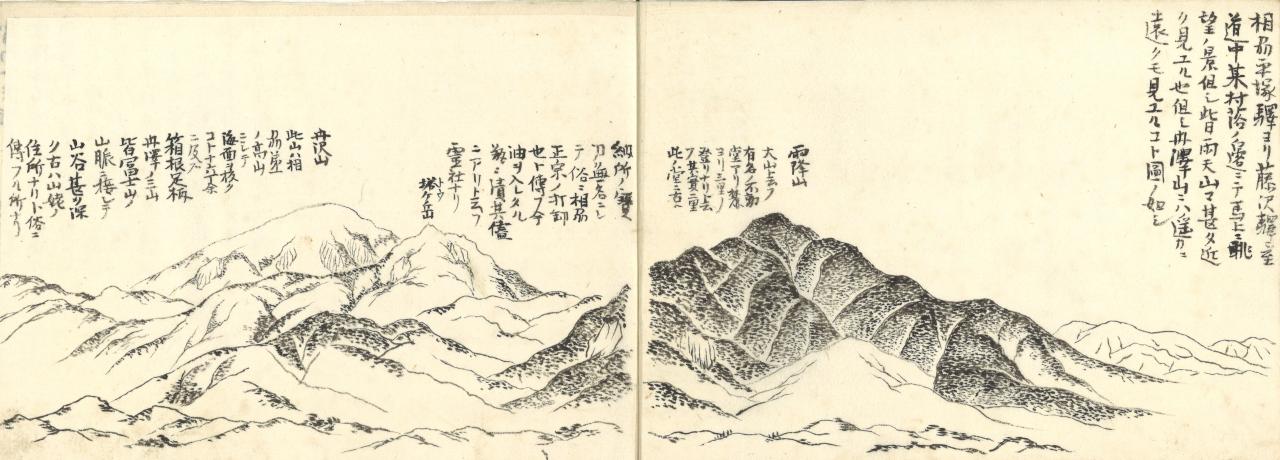 相州平塚驛ヨリ藤沢驛ニ至
道中某村落ノ邊ニテ馬上ニ眺
望ノ景但シ此日雨天山マ甚タ近
ク見エル也但シ丹澤山ニハ遙カニ
遠クモ見エルコト圖ノ如シ
雨降山
大山ト云フ
有名ノ不動
堂アリ麓
ヨリ三里ノ
登リナリト云
フ其実二里
此不動堂ニ古ヘ
納所ノ
刀ノ無名ニシ
テ俗ニ相州
正宗ノ打卸
也ト傳フ今
油ヲ入レタル
ニ漬其儘
ニアリト云フ
霊社ナリ
トウ
塔ケ岳
丹沢山
此山ハ相
州第一
ノ高山
ニシテ
海面ヲ抜ク
コト
ニ及フ
箱根足柄
丹澤ノ三山
皆冨士山ノ
山脈ニ接シテ
山谷甚タ深
ク古ハ山姥ノ
住所ナリト俗ニ
傳フル所ナリ